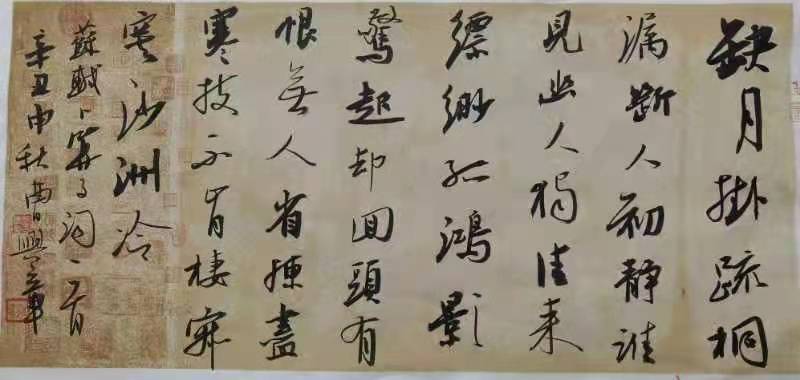 缺月掛疏桐
漏斷人初靜誰
見幽人獨往来
縹緲孤鴻影
驚起却回頭有
恨無人省揀盡
寒枝不肯棲寂
寞沙洲冷
蘇軾卜算子詞一首
辛丑中秋曹興